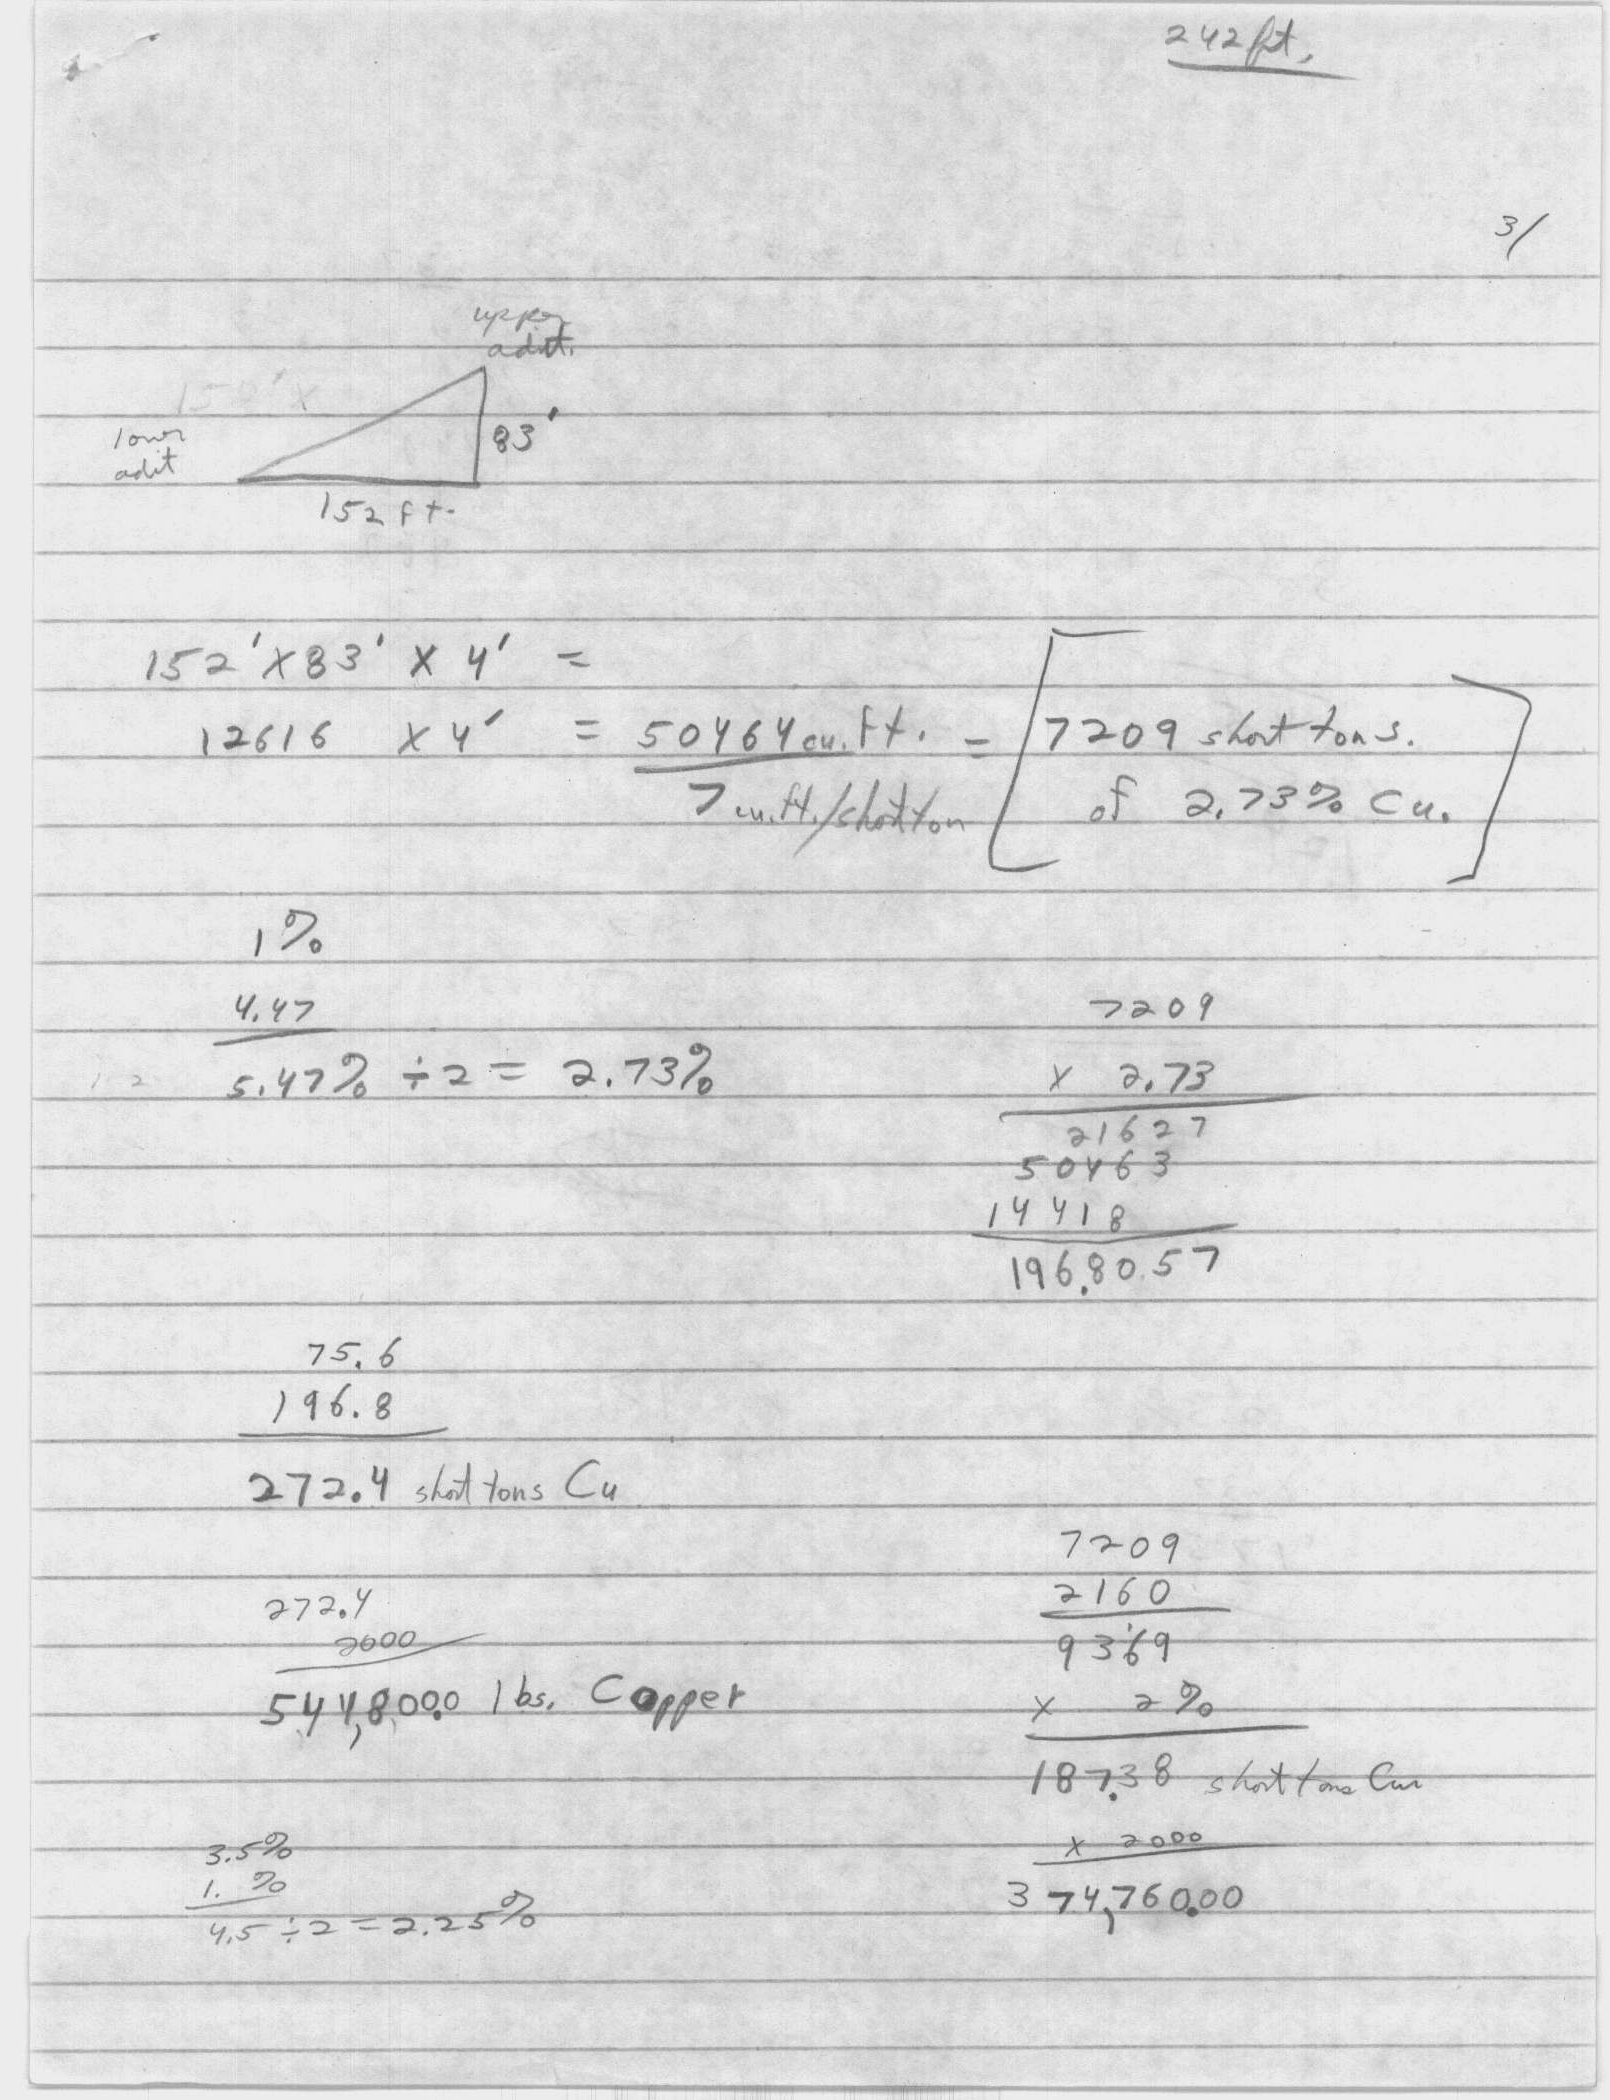 242 ft.
3/
upper
adit.
150' x
lower
adit
83'
152 ft.
152' x 83' x 4' =
12616 x 4' = 50464 cu. ft. = 7209 short tons.
7 cu. ft./short ton
of 2.73% Cu.
1%
4.47
5.47% ÷ 2 = 2.73%
7209
x 2.73
21627
50463
14418
196.8057
75.6
196.8
272.4 short tons Cu
272.4
2000
544,800.0 lbs. Copper
7209
2160
9369
x 2%
187.38 short tons Cu
x 2000
374,760.00
3.5%
1. %
4.5 ÷ 2 = 2.25%